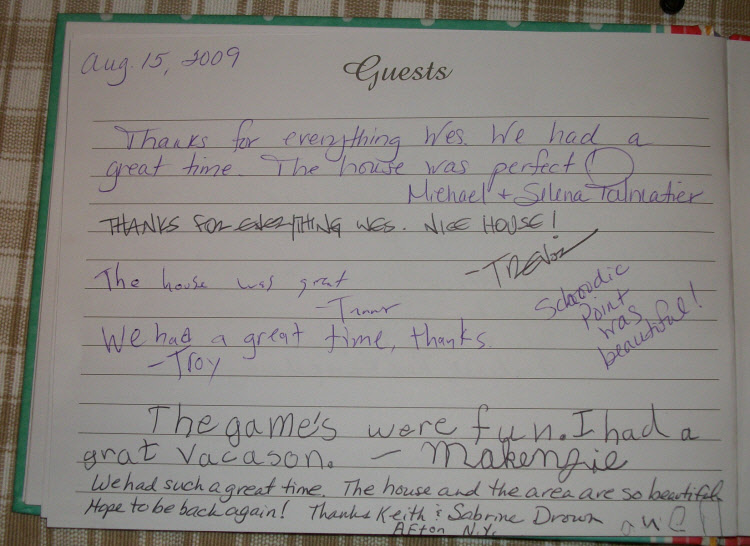 Aug. 15, 2009
Guests
Thanks for everything Wes. We had a
great time. The house was perfect!
Michael + Selena Talmatier
THANKS FOR EVERYTHING WES. NICE HOUSE!
-TREVOR
The house was great
We had a great time, thanks.
-Troy
Schoodic
Point
was
beautiful!
The game's were fun. I had a
grat vacason. - Makenzie
We had such a great time. The house and the area are so beautiful.
Hope to be back again! Thanks Keith & Sabrine Drown
Afton N.Y.